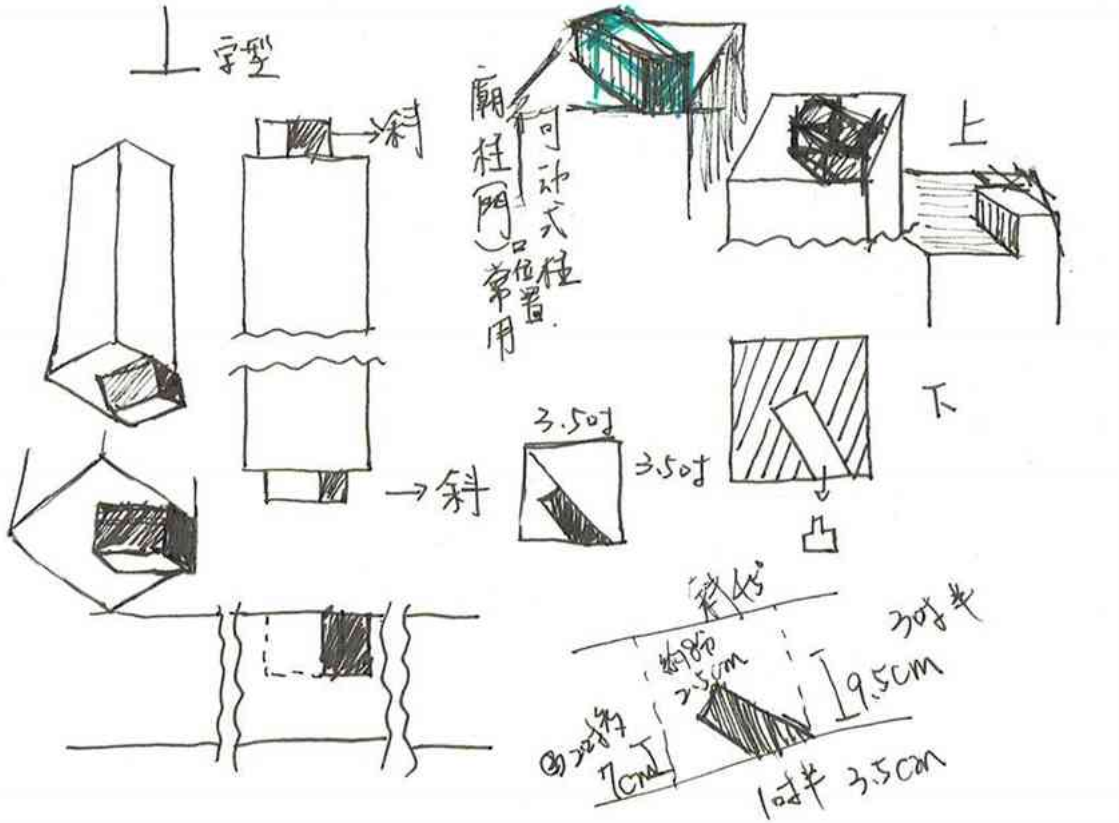 字型
斜
廟柱(門)常用
可动式柱
口位置.
上
斜
3.5吋
3.5吋
下
凸
斜45°
約8分
2.5cm
3吋半
9.5cm
7cm
1吋半 3.5cm